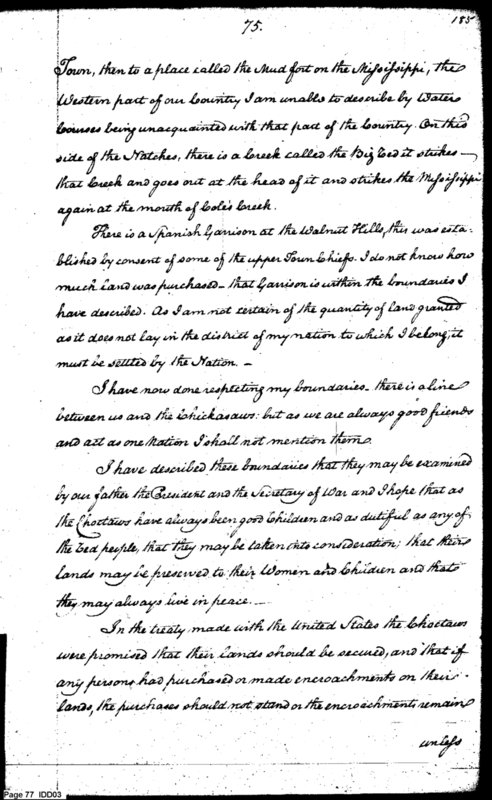 185
75.
Town, then to a place called the Mud fort on the Mississippi, the
Western part of our Country I am unable to describe by Water
Courses being unacquainted with that part of the Country. On this
side of the Natches, there is a Creek called the Big it strikes
that Creek and goes out at the head of it and strikes the Mississippi
again at the mouth of Cole's Creek.
There is a Spanish Garrison at the Walnut Hills, this was esta-
blished by consent of some of the upper Town Chiefs. I do not know how
much Land was purchased - that Garrison is within the boundaries I
have described. As I am not certain of the quantity of land granted
as it does not lay in the district of my nation to which I belong, it
must be settled by the Nation. -
I have now done respecting my boundaries - there is a line
between us and the Chickasaws: but as we are always good friends
and act as one Nation I shall not mention them.
I have described these boundaries that they may be examined
by our father the President and the Secretary of War and I hope that as
the Choctaws have always been good Children and as dutiful as any of
the Red people, that they may be taken into consideration; that their
lands may be preserved to their Women and Children and that
they may always live in peace. -
In the treaty made with the United States the Choctaws
were promised that their lands should be secured, and that if
any persons had purchased or made encroachments on their
lands, the purchases should not stand or the encroachments remain
unless
Page 77 IDD03